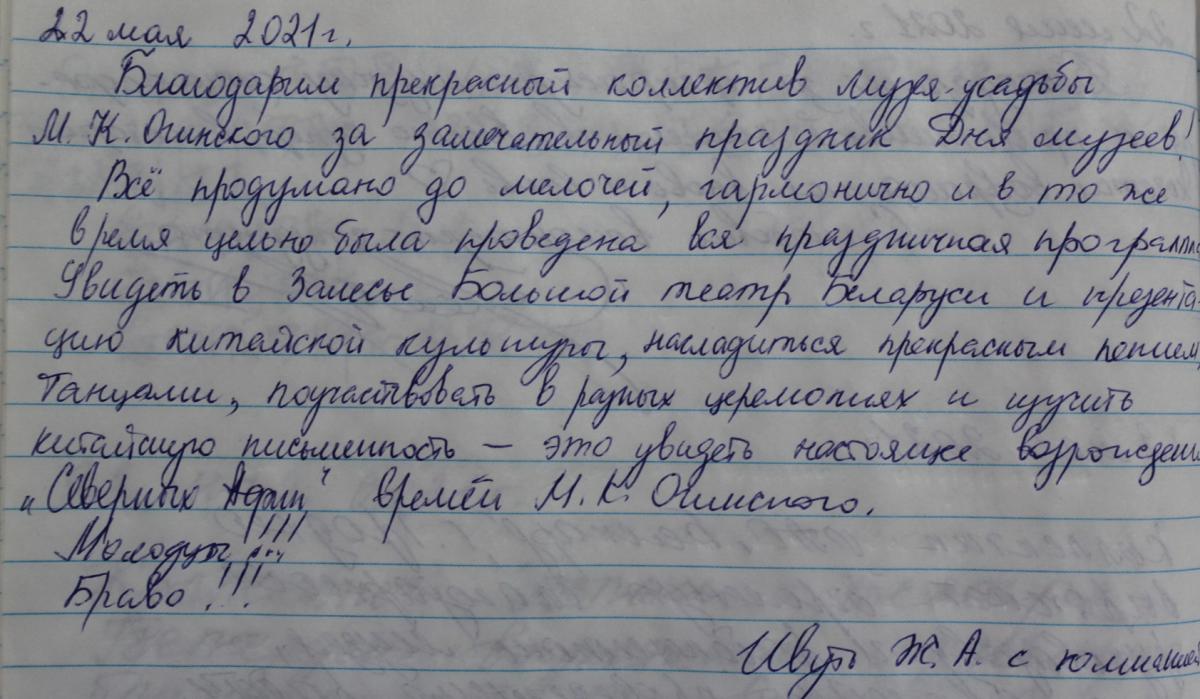 22 мая 2021г.
Благодарим прекрасный коллектив музея-усадьбы
М. К. Огинского за замечательный праздник Дня музеев!
Всё продумано до мелочей, гармонично и в то же
время цельно была проведена вся праздничная программа
Увидеть в Залесье Большой театр Беларуси и презента-
цию китайской культуры, насладиться прекрасным пением,
танцами, поучаствовать в разных церемониях и изучить
китайскую письменность – это увидеть настоящее возрождение
„Северных Афин" времён М. К. Огинского.
Молодцы!!!!
Браво!!!
Ж. А. с компанией